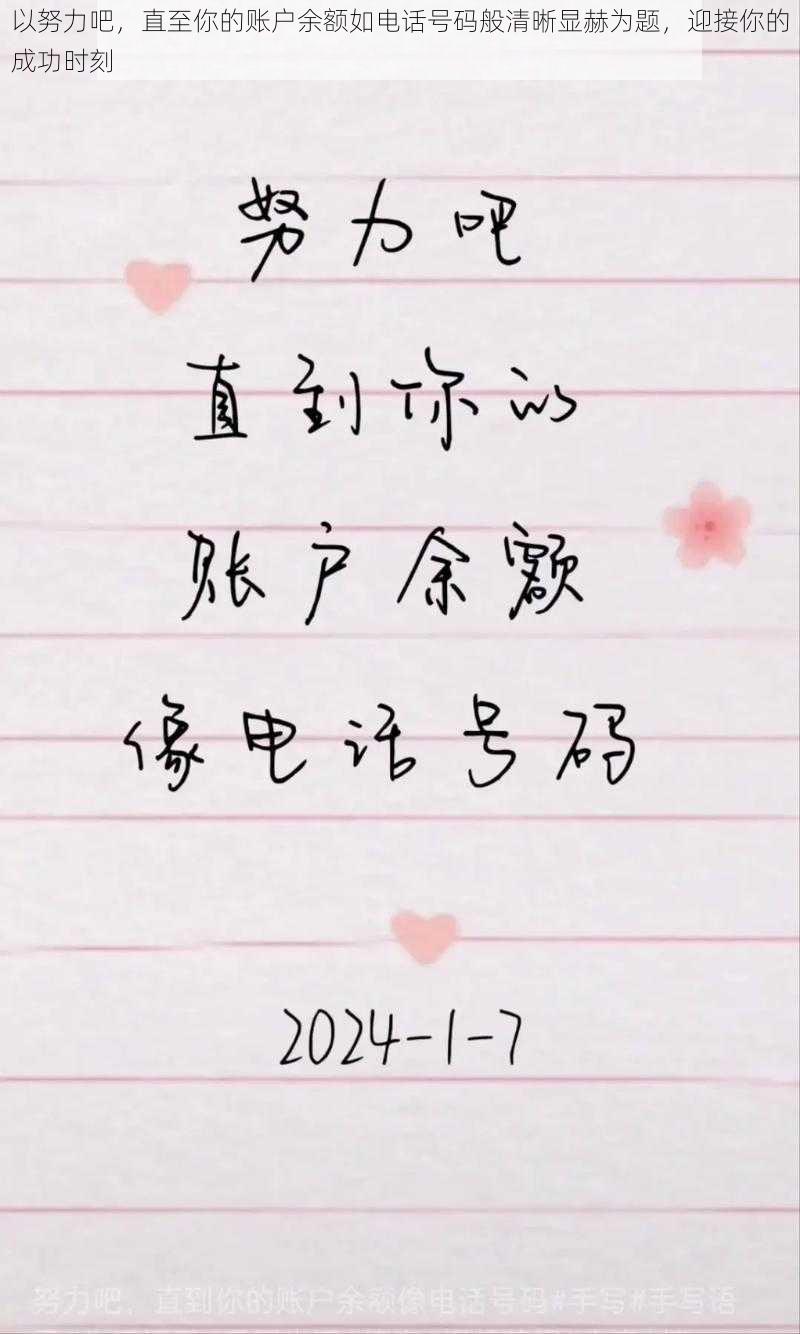 以努力吧，直至你的账户余额如电话号码般清晰显赫为题，迎接你的
成功时刻
努力吧
直到你的
账户余额
像电话号码
2024-1-7
努力吧，直到你的账户余额像电话号码#手写#手写语